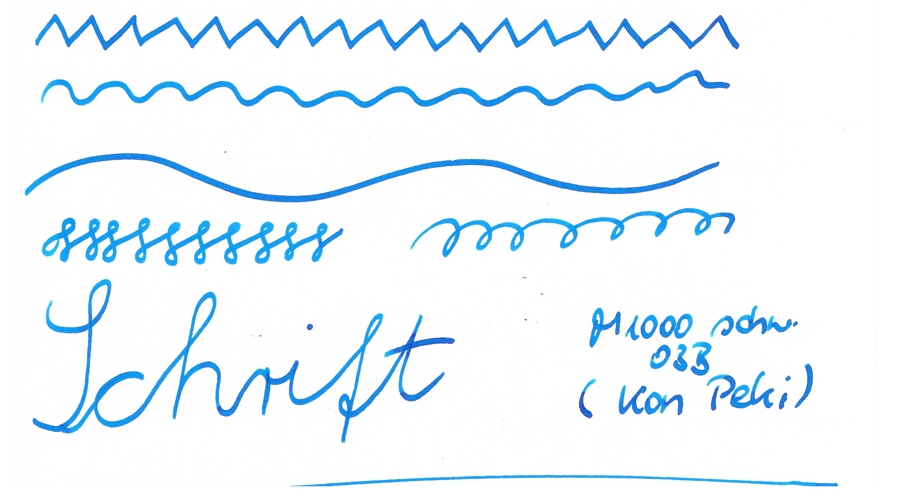 Schrift
M1000 schw.
O3B
(Kon Peki)